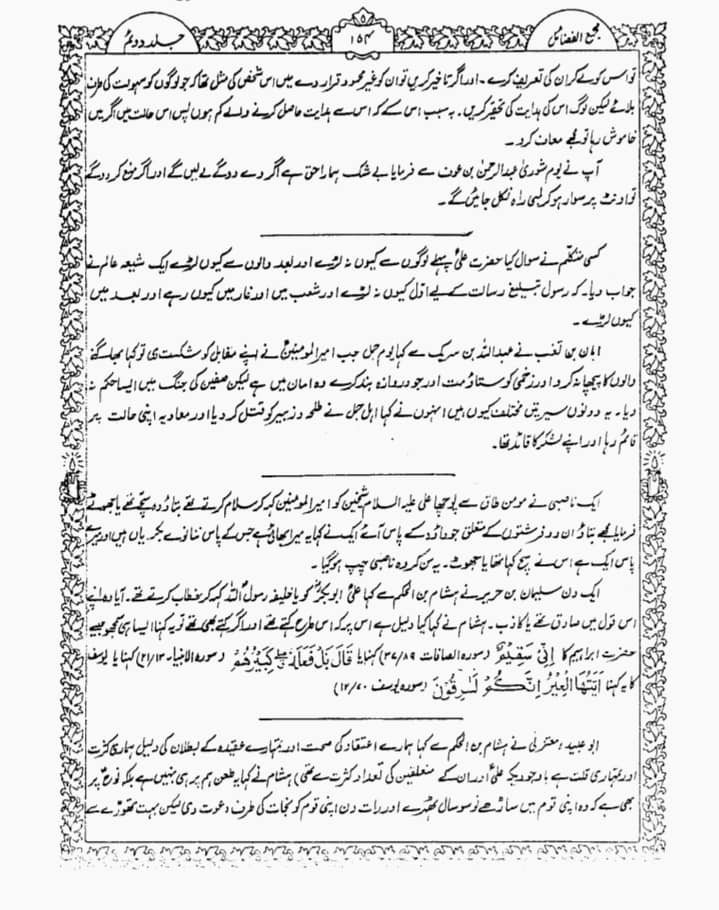 مجمع الفضائل
۱۵۴
جلد دوئم
تو اس کو لے کر ان کی تعریف کرے ۔ اور اگر تاخیر کریں تو ان کو غیر محمود قرار دے میں اس شخص کی مثل تھا کہ جو لوگوں کو سہولت کی طرف
بلائے لیکن لوگ اس کی ہدایت کی تحقیر کریں ۔ بہ سبب اس کے کہ اس سے ہدایت حاصل کرنے والے کم ہوں پس اس حالت میں اگر میں
خاموش رہا تو مجھے معاف کرو ۔
آپ نے یوم شوریٰ عبدالرحمٰن بن عوف سے فرمایا بے شک ہمارا حق ہے اگر دے دو گے لے لیں گے اور اگر منع کر دو گے
تو اونٹ پر سوار ہو کر لمبی راہ نکل جائیں گے ۔
کسی متکلم نے سوال کیا حضرت علیؑ پہلے لوگوں سے کیوں نہ لڑے اور بعد والوں سے کیوں لڑے ایک شیعہ عالم نے
جواب دیا ۔ کہ رسول تبلیغ رسالت کے لیے اول کیوں نہ لڑے اور شعب میں اور غار میں کیوں رہے اور بعد میں
کیوں لڑے ۔
ابان بن تغب نے عبداللہ بن سریک سے کہا یوم جمل جب امیرالمومنینؑ نے اپنے مقابل کو شکست دی تو کہا بھاگنے
والوں کا پیچھا نہ کرو اور زخمی کو ستاؤ مت اور جو دروازہ بند کرے وہ امان میں ہے لیکن صفین کی جنگ میں ایسا حکم نہ
دیا ۔ یہ دونوں سیرتیں مختلف کیوں ہیں انہوں نے کہا اہل جمل نے طلحہ و زبیر کو قتل کر دیا اور معاویہ اپنی حالت پر
قائم رہا اور اپنے لشکر کا قائد تھا ۔
ایک ناصبی نے مومن طاق سے پوچھا علی علیہ السلام شیخین کو امیرالمومنین کہہ کر سلام کرتے تھے بتاؤ وہ سچے تھے یا جھوٹے
فرمایا مجھے بتاؤ ان دو فرشتوں کے متعلق جو داؤد کے پاس آئے ایک نے کہا یہ میرا بھائی ہے جس کے پاس ننانوے بکریاں ہیں اور میرے
پاس ایک ہے اس نے سچ کہا تھا یا جھوٹ ۔ یہ سن کر وہ ناصبی چپ ہو گیا ۔
ایک دن سلیمان بن حریر نے ہشام بن الحکم سے کہا علیؑ ابوبکرؓ کو یا خلیفہ رسول اللہ کہہ کر خطاب کرتے تھے ۔ آیا وہ اپنے
اس قول میں صادق تھے یا کاذب ۔ ہشام نے کہا کیا دلیل ہے اس پر کہ اس طرح کہتے تھے اور اگر کہتے بھی تھے تو یہ کہنا ایسا ہی سمجھو جیسے
حضرت ابراہیمؑ کا اِنِّیْ سَقِیْمٌ (سورہ الصافات ۳۷/۸۹) کہنا یا قَالَ بَلْ فَعَلَهٗ كَبِيْرُهُمْ (سورہ الانبیاء ۲۱/۱۳) کہنا یا یوسف
کا یہ کہنا اَيَّتُهَا الْعِيْرُ اِنَّكُمْ لَسٰرِقُوْنَ (سورہ یوسف ۱۲/۷۰)
ابو عبید معتزلی نے ہشام بن الحکم سے کہا ہمارے اعتقاد کی صحت اور تمہارے عقیدہ کے بطلان کی دلیل ہماری کثرت
اور تمہاری قلت ہے باوجودیکہ علیؑ اور ان کے متعلقین کی تعداد کثرت سے تھی) ہشام نے کہا یہ طعن ہم پر ہی نہیں ہے بلکہ نوحؑ پر
بھی ہے کہ وہ اپنی قوم میں ساڑھے نو سو سال ٹھہرے اور رات دن اپنی قوم کو نجات کی طرف دعوت دی لیکن بہت تھوڑے سے